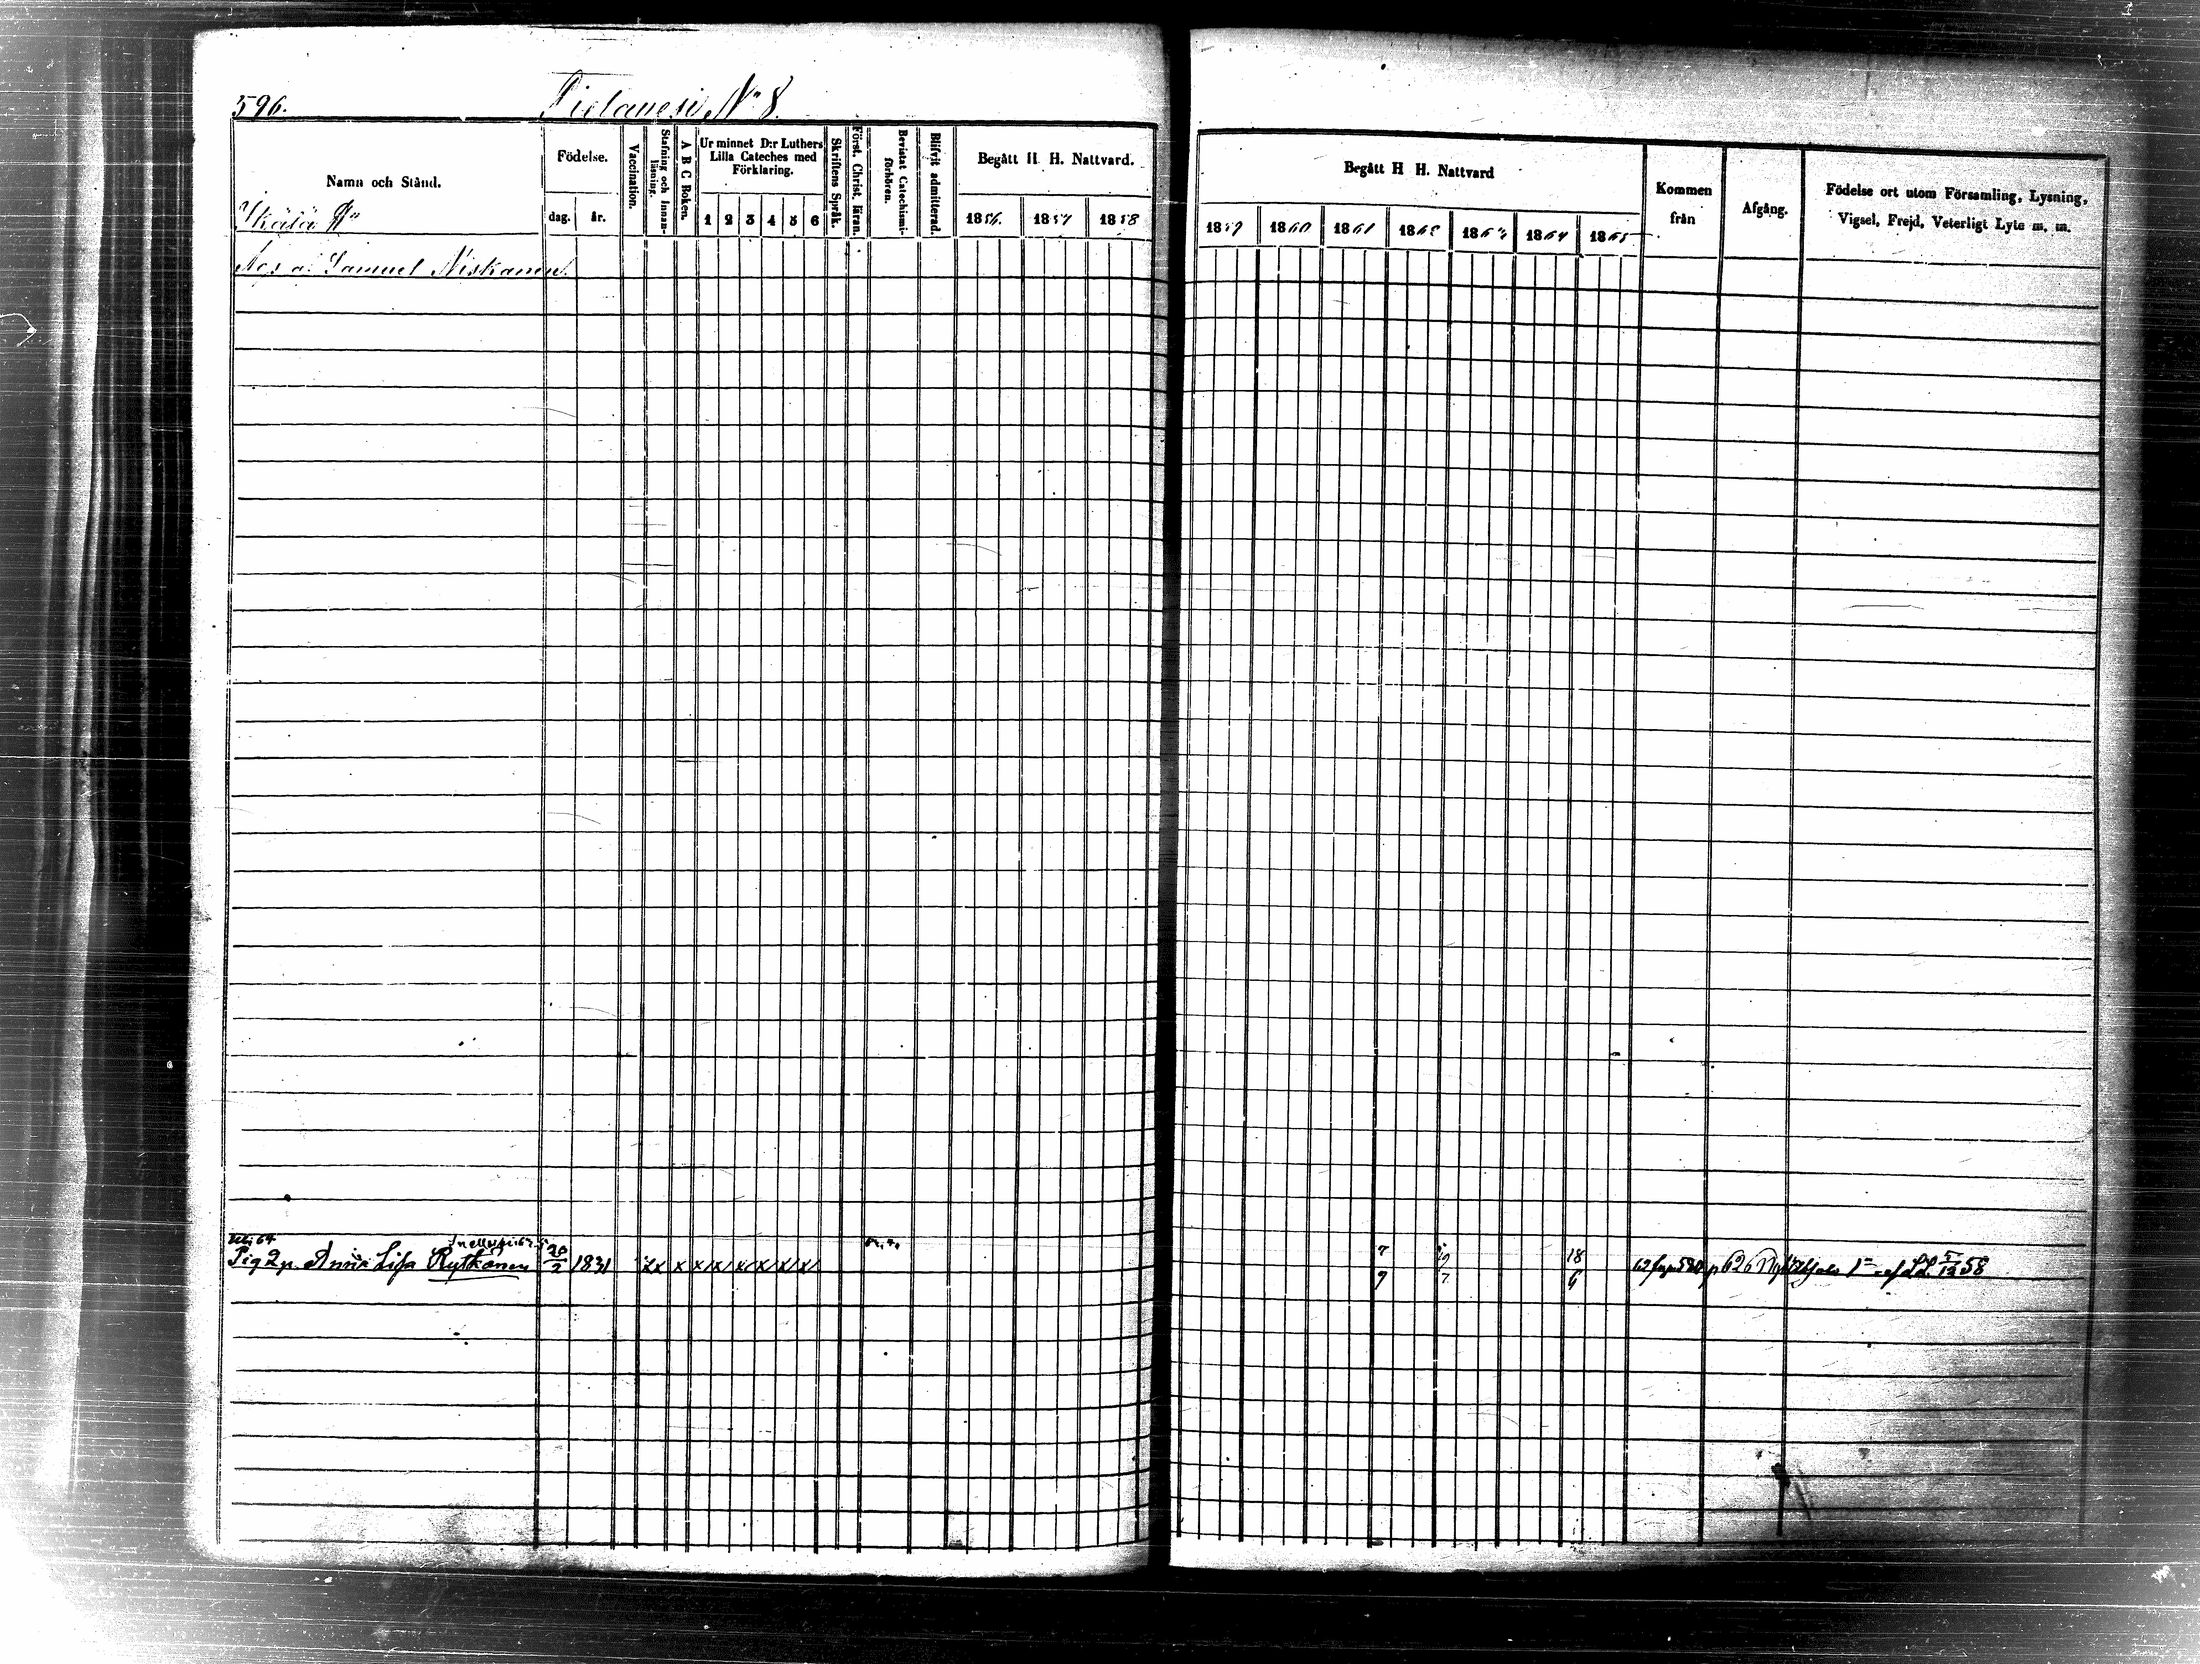 596.
N:o 8.
Namn och Stånd.
Födelse.
dag.
år.
Vaccination.
Stafning och Innan-
läsning.
A B C Boken.
Ur minnet D:r Luthers
Lilla Cateches med
Förklaring.
1 2 3 4 5 6
Skriftens Språk.
Först. Christ. läran.
Bevistat Catechismi-
förhören.
Blifvit admitterad.
Begått H. H. Nattvard.
1856. 1857 1858
Samuel Niskanen.
Anna Lisa Rytkönen 28/2 1831 xx x x x x x x x
Begått H H. Nattvard
1859 1860 1861 1862 1863 1864 1865
Kommen
från
Afgång.
Födelse ort utom Församling, Lysning,
Vigsel, Frejd, Veterligt Lyte m. m.
7 18
9 7 6
62 p 626
58